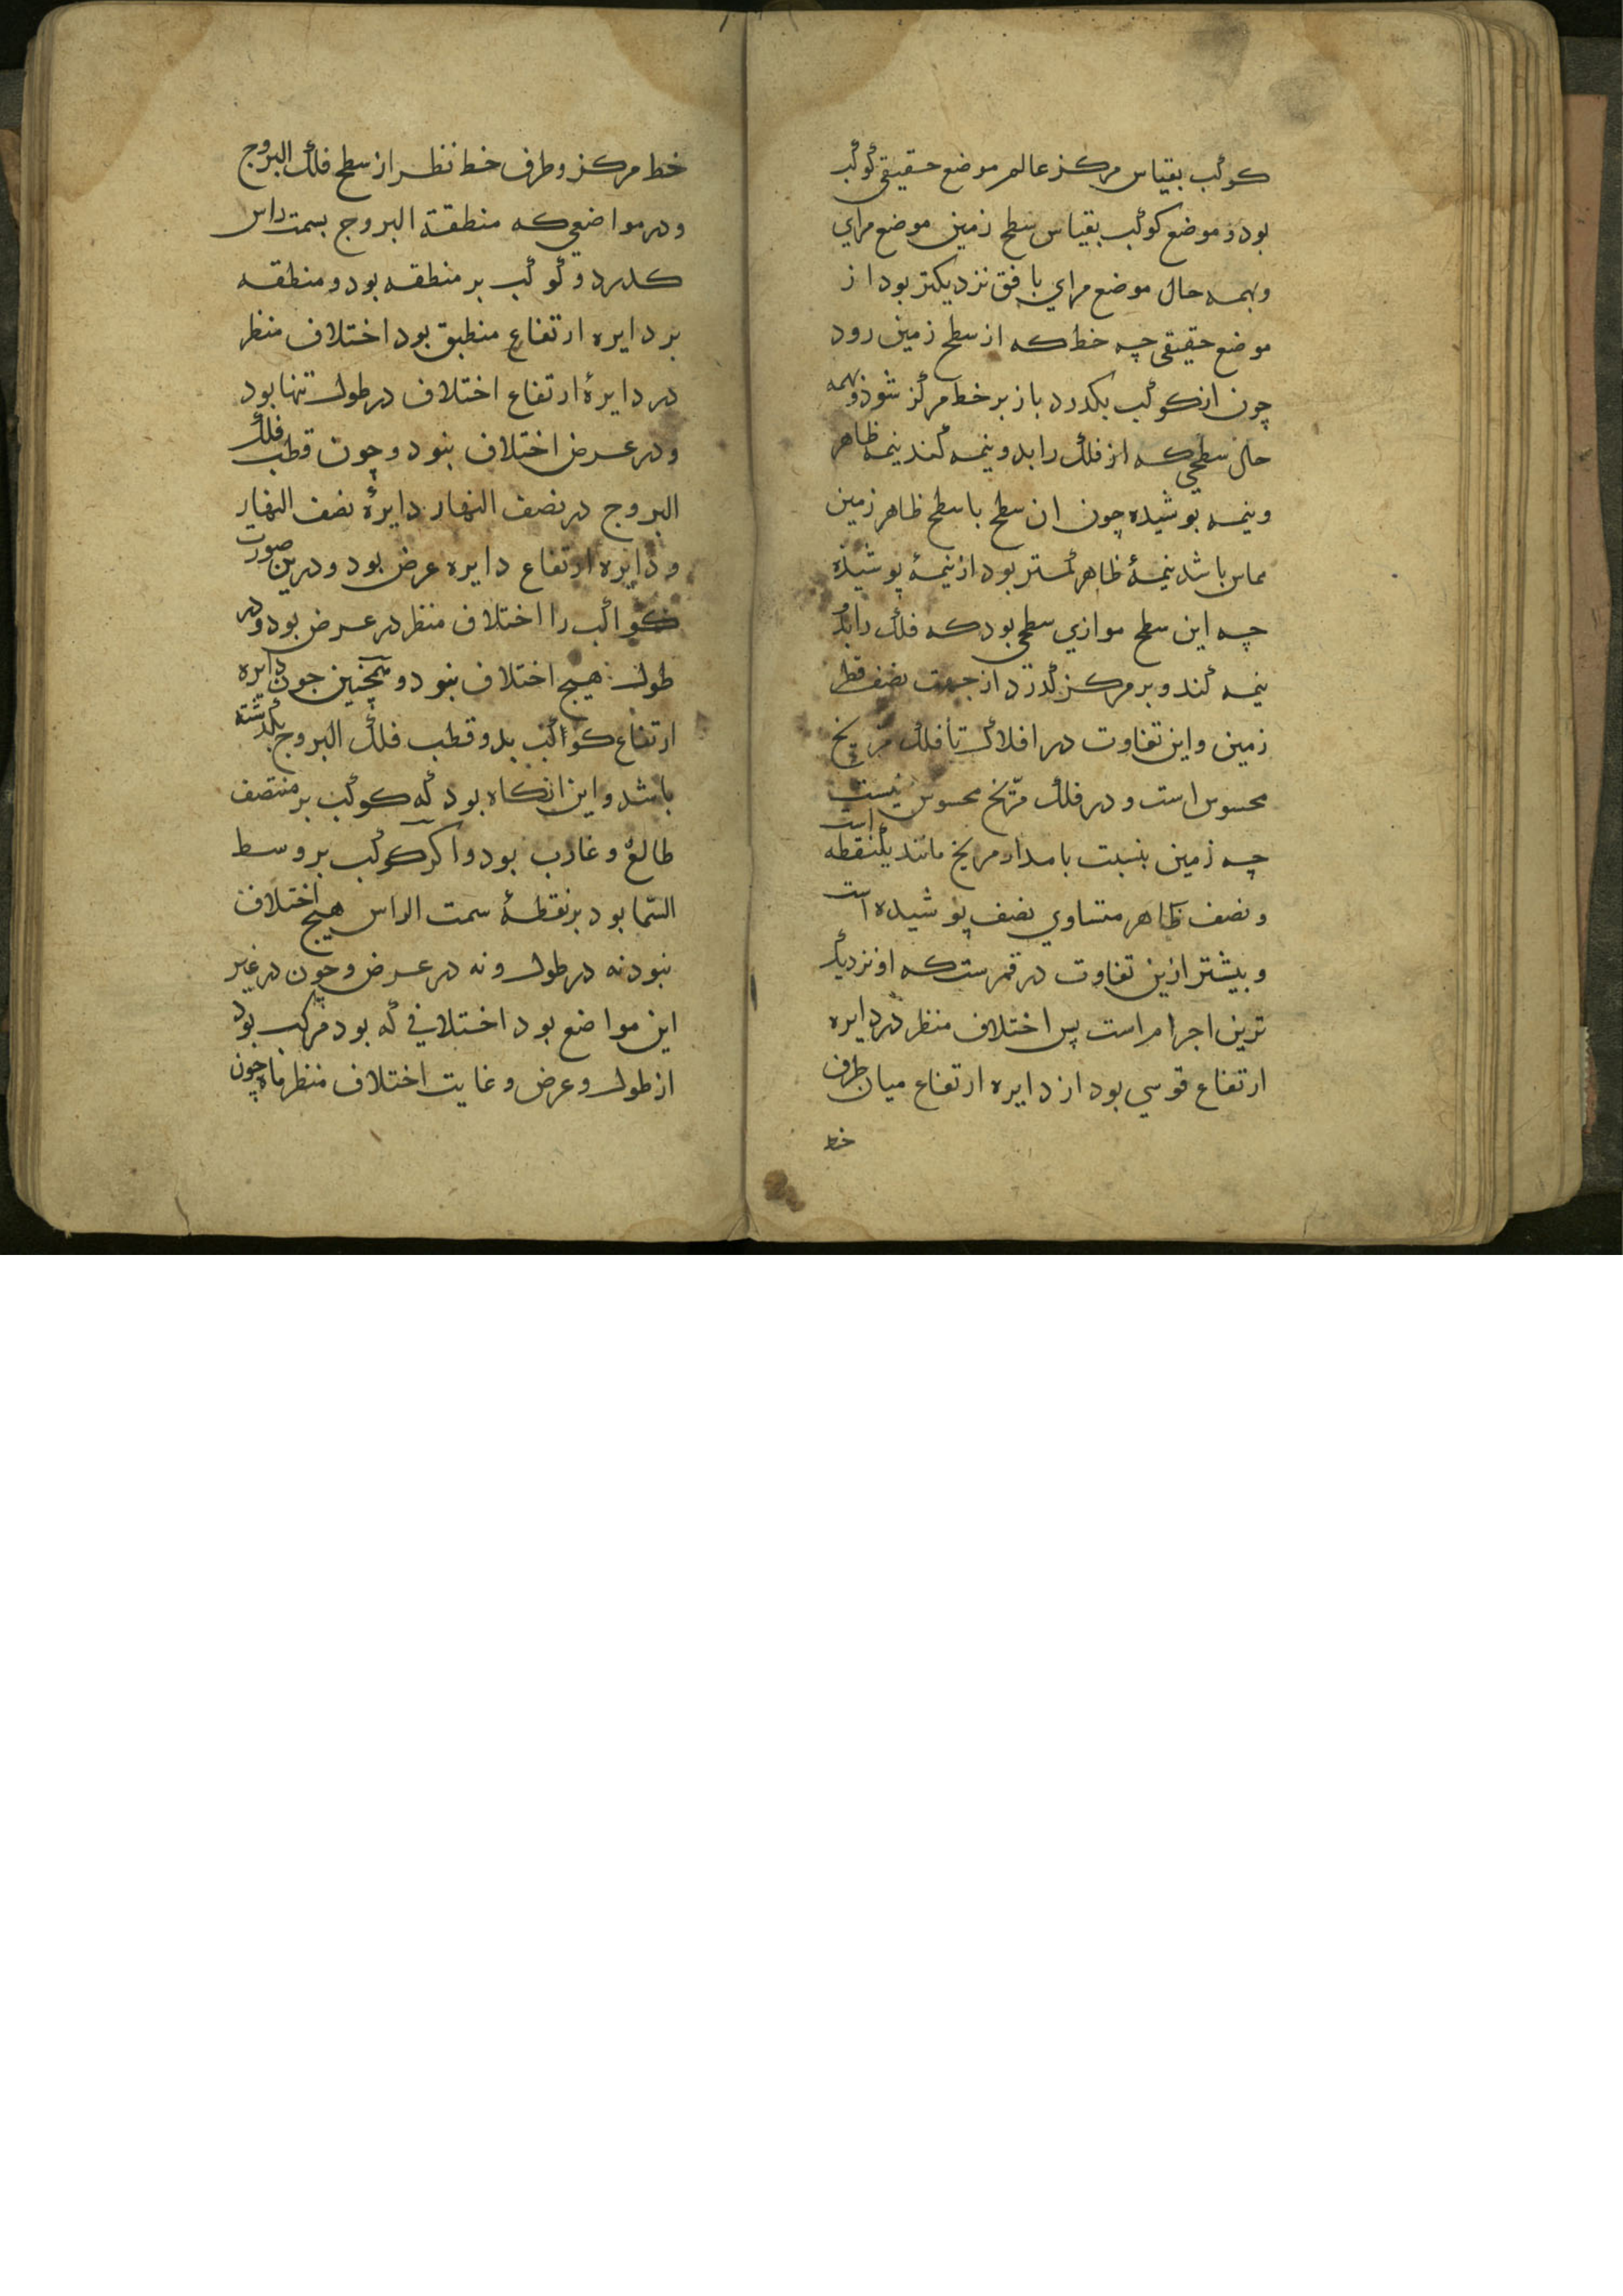 کوکب بقیاس مرکز عالم موضع حقیقی کوکب
بود و موضع کوکب بقیاس سطح زمین موضع مرای
وبهمه حال موضع مرای بافق نزدیکتر بود از
موضع حقیقی چه خط که از سطح زمین رود
چون از کوکب بکدرد باز بر خط مرکز شود و بهمه
حال سطحی که از فلک را بدو نیمه کند نیمه ظاهر
و نیمه پوشیده چون ان سطح با سطح ظاهر زمین
مماس باشد نیمهٔ ظاهر کمتر بود از نیمهٔ پوشیده
چه این سطح موازی سطحی بود که فلک را بدو
نیمه کند و بر مرکز گذرد از جهت نصف قطر
زمین و این تفاوت در افلاک تا فلک مریخ
محسوس است و در فلک مریخ محسوس نیست
چه زمین بنسبت با مدار مریخ مانند یک نقطه است
و نصف ظاهر متساوی نصف پوشیده است
و بیشتر ازین تفاوت در قمرست که او نزدیک
ترین اجرام است پس اختلاف منظر در دایره
ارتفاع قوسی بود از دایره ارتفاع میان طرف
خط
خط مرکز و طرف خط نظر از سطح فلک البروج
و در مواضعی که منطقة البروج بسمت راس
کدرد و کوکب بر منطقه بود و منطقه
بر دایره ارتفاع منطبق بود اختلاف منظر
در دایرهٔ ارتفاع اختلاف در طول تنها بود
و در عرض اختلاف نبود و چون قطب فلک
البروج در نصف النهار دایرهٔ نصف النهار
و دایره ارتفاع دایره عرض بود و درین صورت
کواکب را اختلاف منظر در عرض بود و در
طول هیچ اختلاف نبود و همچنین چون دایره
ارتفاع کواکب بدو قطب فلک البروج بگذشته
باشد و این انکاه بود که کوکب بر منتصف
طالع و غارب بود و اکر کوکب بر وسط
السّما بود بر نقطهٔ سمت الراس هیچ اختلاف
نبود نه در طول و نه در عرض و چون در غیر
این مواضع بود اختلافی که بود مرکب بود
از طول و عرض و غایت اختلاف منظر ماه چون